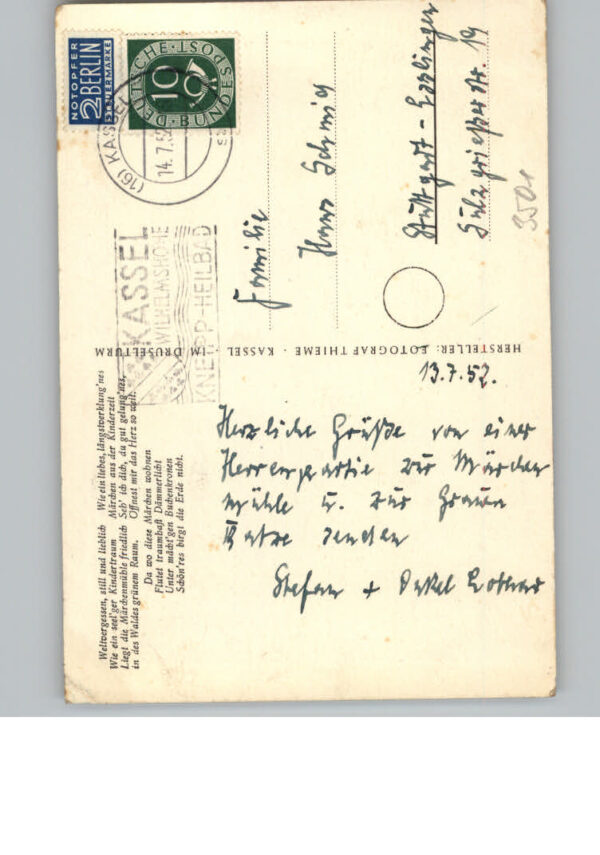 NOTOPFER
2 BERLIN
STEUERMARKE
DEUTSCHE BUNDESPOST
10
(16) KASSEL
14.7.52
KASSEL
WILHELMSHÖHE
KNEIPP-HEILBAD
Familie
Hans Schmid
Stuttgart -
Sulzgrieserstr. 19
3501
HERSTELLER: FOTOGRAF THIEME · KASSEL · IM DRUSELTURM
Weltvergessen, still und lieblich
Wie ein seel'ger Kindertraum
Liegt die Märchenmühle friedlich
in des Waldes grünem Raum.
Wie ein liebes, längstverklung'nes
Märchen aus der Kinderzeit
Seh' ich dich, du gut gelung'nes,
Öffnest mir das Herz so weit.
Da wo diese Märchen wohnen
Flutet traumhaft Dämmerlicht
Unter mächt'gen Buchenkronen
Schön'res birgt die Erde nicht.
13.7.52.
Herzliche Grüße von einer
Herrenpartie zur Märchen
mühle u. zur Grauen
Katze senden
Stefan + Onkel Lothar